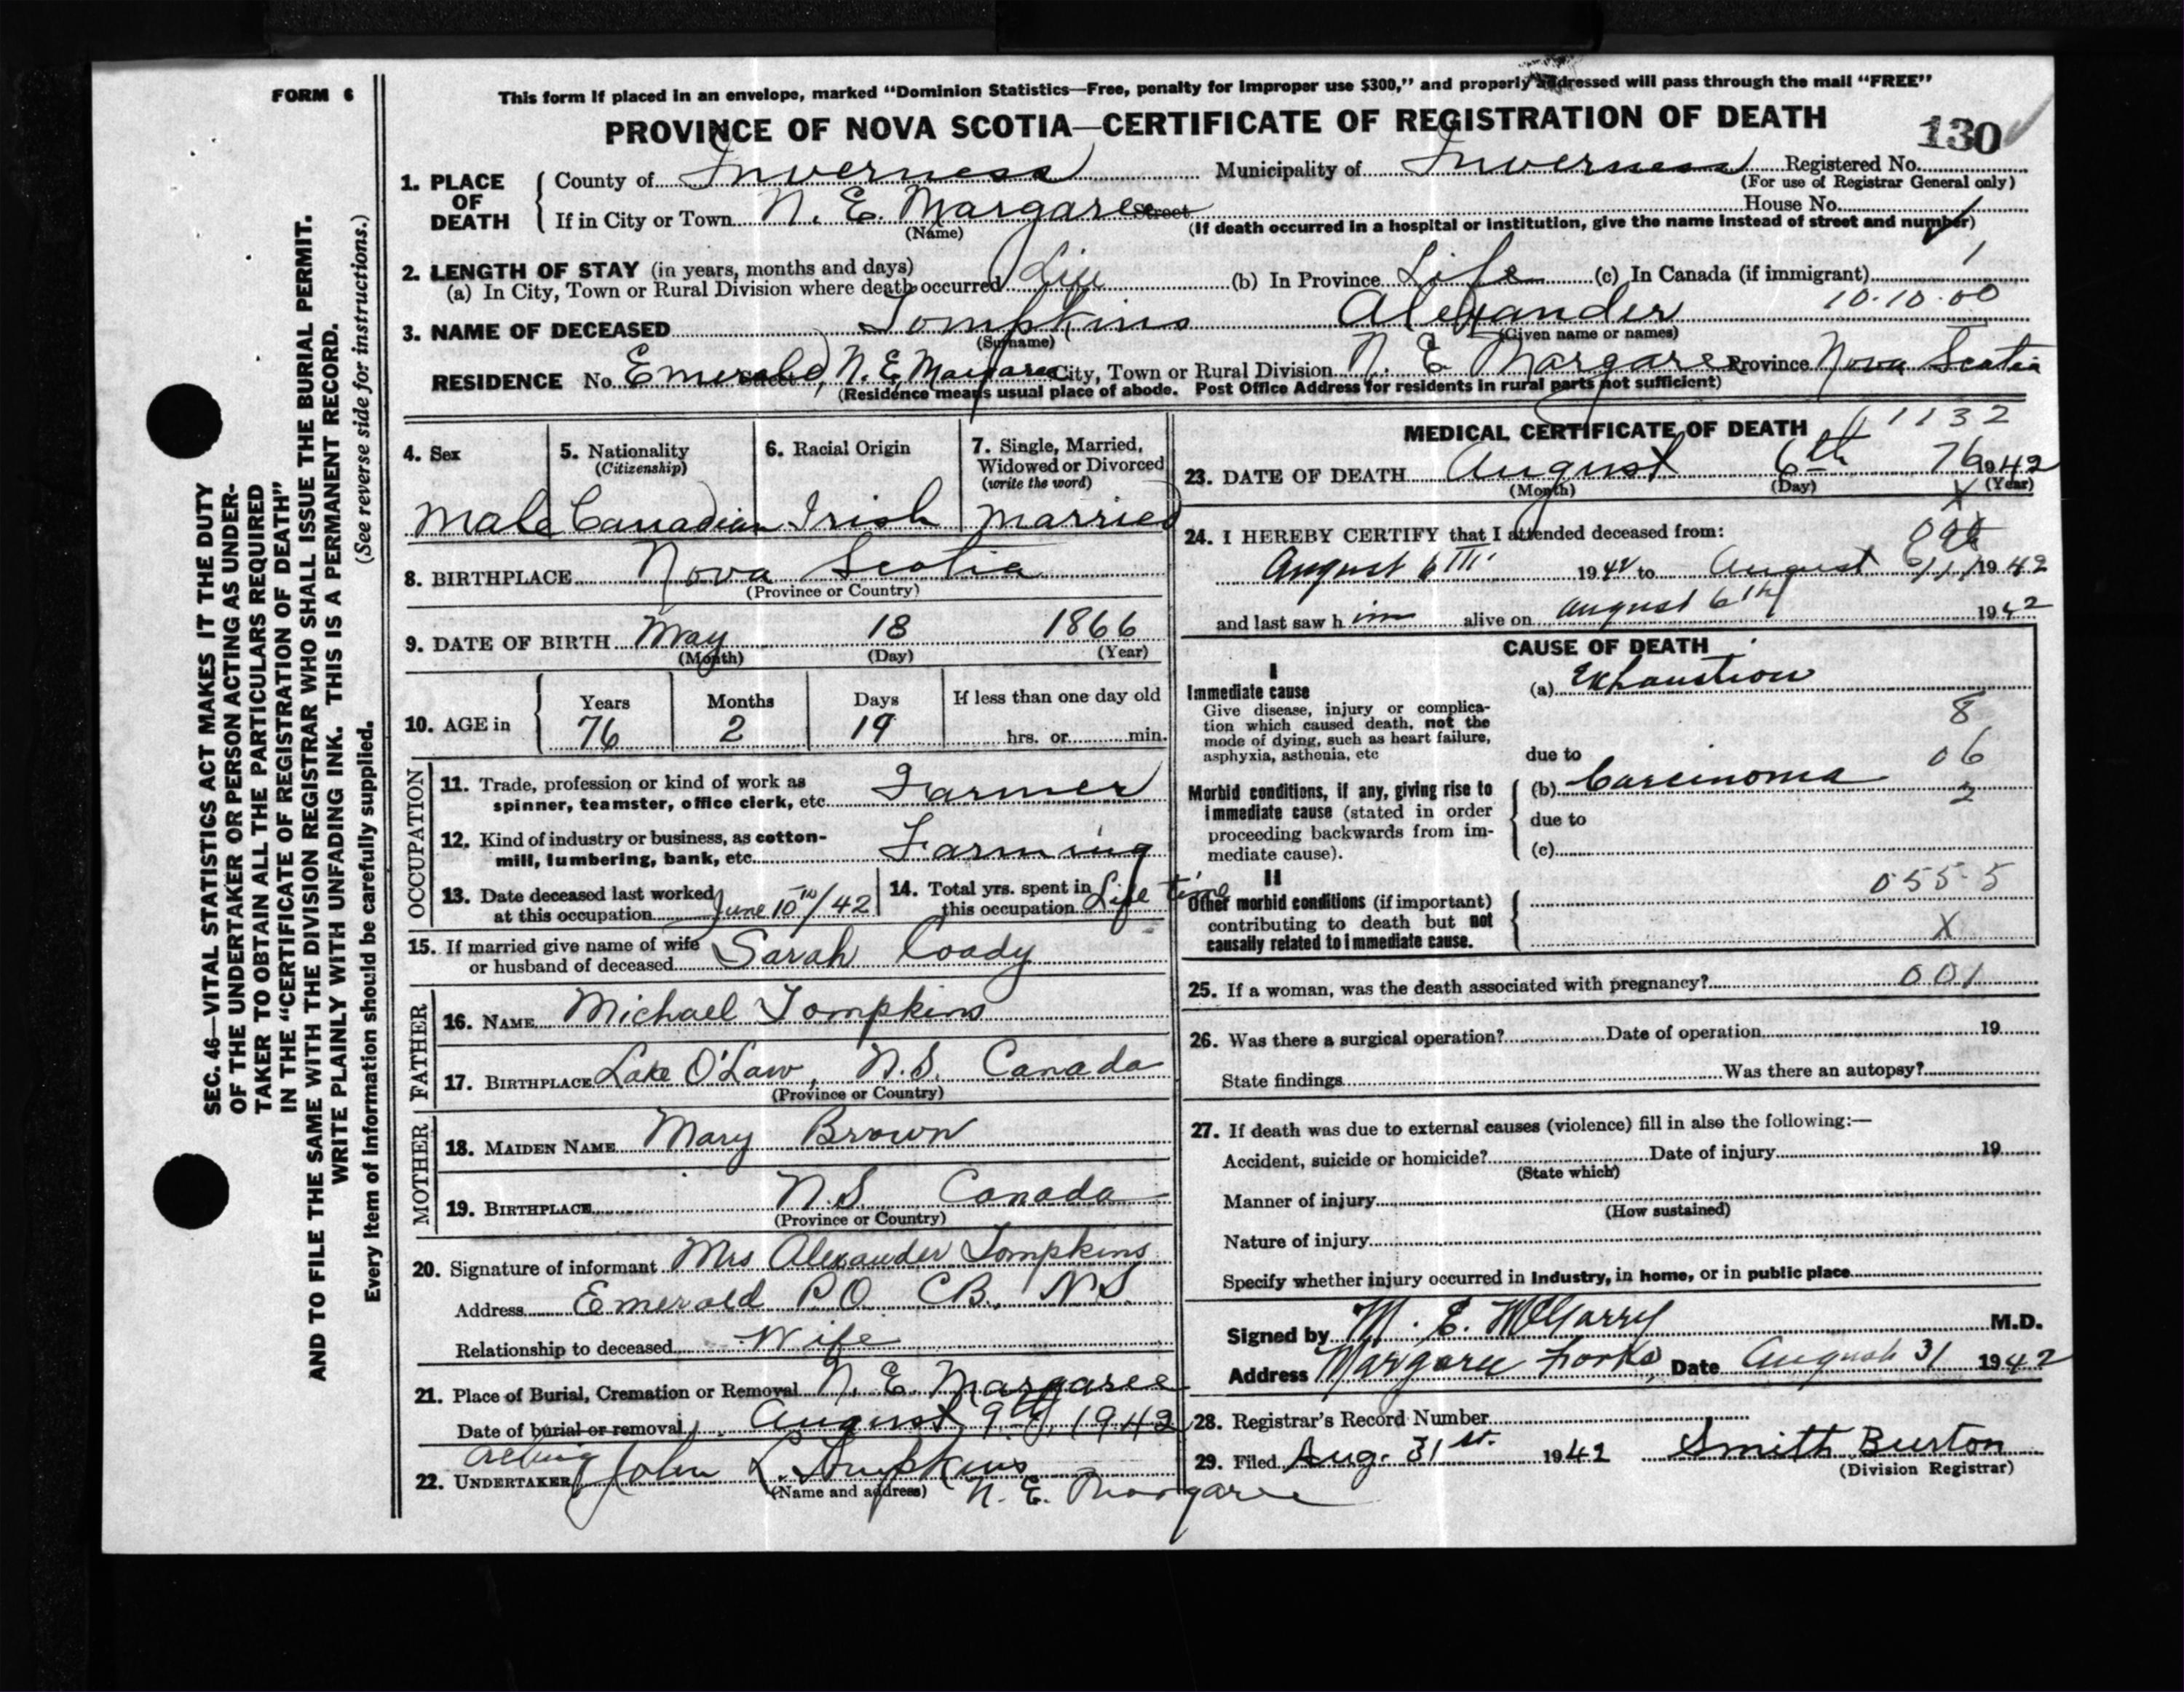 FORM 6
This form if placed in an envelope, marked "Dominion Statistics—Free, penalty for improper use $300," and properly addressed will pass through the mail "FREE"
PROVINCE OF NOVA SCOTIA—CERTIFICATE OF REGISTRATION OF DEATH
130
1. PLACE OF DEATH
County of Inverness Municipality of Inverness Registered No.
(For use of Registrar General only)
If in City or Town N. E. Margaree Street House No.
(Name) (If death occurred in a hospital or institution, give the name instead of street and number)
2. LENGTH OF STAY (in years, months and days)
(a) In City, Town or Rural Division where death occurred Life (b) In Province Life (c) In Canada (if immigrant)
10.10.00
3. NAME OF DECEASED Tompkins Alexander
(Surname) (Given name or names)
RESIDENCE No. Emerald, N. E. Margaree Street City, Town or Rural Division N. E. Margaree Province Nova Scotia
(Residence means usual place of abode. Post Office Address for residents in rural parts not sufficient)
4. Sex
Male
5. Nationality
(Citizenship)
Canadian
6. Racial Origin
Irish
7. Single, Married,
Widowed or Divorced
(write the word)
Married
8. BIRTHPLACE Nova Scotia
(Province or Country)
9. DATE OF BIRTH May 18 1866
(Month) (Day) (Year)
10. AGE in
Years Months Days If less than one day old
76 2 19 hrs. or min.
OCCUPATION
11. Trade, profession or kind of work as
spinner, teamster, office clerk, etc. Farmer
12. Kind of industry or business, as cotton-
mill, lumbering, bank, etc. Farming
13. Date deceased last worked
at this occupation June 10th/42
14. Total yrs. spent in
this occupation Life time
15. If married give name of wife
or husband of deceased Sarah Coady
FATHER
16. NAME Michael Tompkins
17. BIRTHPLACE Lake O'Law, N.S. Canada
(Province or Country)
MOTHER
18. MAIDEN NAME Mary Brown
19. BIRTHPLACE N.S. Canada
(Province or Country)
20. Signature of informant Mrs Alexander Tompkins
Address Emerald P.O. C.B. N.S.
Relationship to deceased Wife
21. Place of Burial, Cremation or Removal N. E. Margaree
Date of burial or removal August 9th 1942
Acting
22. UNDERTAKER John L. Tompkins
(Name and address) N. E. Margaree
MEDICAL CERTIFICATE OF DEATH 1132
23. DATE OF DEATH August 6th 76 1942
(Month) (Day) (Year)
X
24. I HEREBY CERTIFY that I attended deceased from:
August 6th 1942 to August 1942
and last saw him alive on August 6th 1942
CAUSE OF DEATH
I
Immediate cause
Give disease, injury or complica-
tion which caused death, not the
mode of dying, such as heart failure,
asphyxia, asthenia, etc
(a) Exhaustion
8
due to 06
Morbid conditions, if any, giving rise to
immediate cause (stated in order
proceeding backwards from im-
mediate cause).
(b) Carcinoma
2
due to
(c)
II
Other morbid conditions (if important)
contributing to death but not
causally related to immediate cause.
055.5
X
25. If a woman, was the death associated with pregnancy? 001
26. Was there a surgical operation? Date of operation 19
State findings Was there an autopsy?
27. If death was due to external causes (violence) fill in also the following:—
Accident, suicide or homicide? Date of injury 19
(State which)
Manner of injury
(How sustained)
Nature of injury
Specify whether injury occurred in industry, in home, or in public place
Signed by M. E. McGarry M.D.
Address Margaree Forks, Date August 31 1942
28. Registrar's Record Number
29. Filed Aug. 31st. 1942 Smith Burton
(Division Registrar)
SEC. 46—VITAL STATISTICS ACT MAKES IT THE DUTY
OF THE UNDERTAKER OR PERSON ACTING AS UNDER-
TAKER TO OBTAIN ALL THE PARTICULARS REQUIRED
IN THE "CERTIFICATE OF REGISTRATION OF DEATH"
AND TO FILE THE SAME WITH THE DIVISION REGISTRAR WHO SHALL ISSUE THE BURIAL PERMIT.
WRITE PLAINLY WITH UNFADING INK. THIS IS A PERMANENT RECORD.
Every item of information should be carefully supplied. (See reverse side for instructions.)